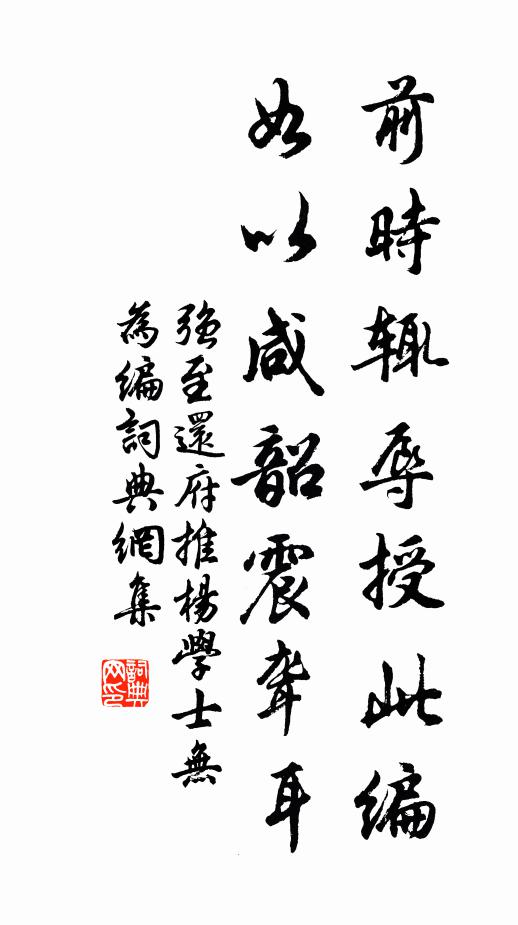 前時輙辱授此编
如以咸韶震聋耳
强至還府推楊學士無
為编詞典網集
詞典网印